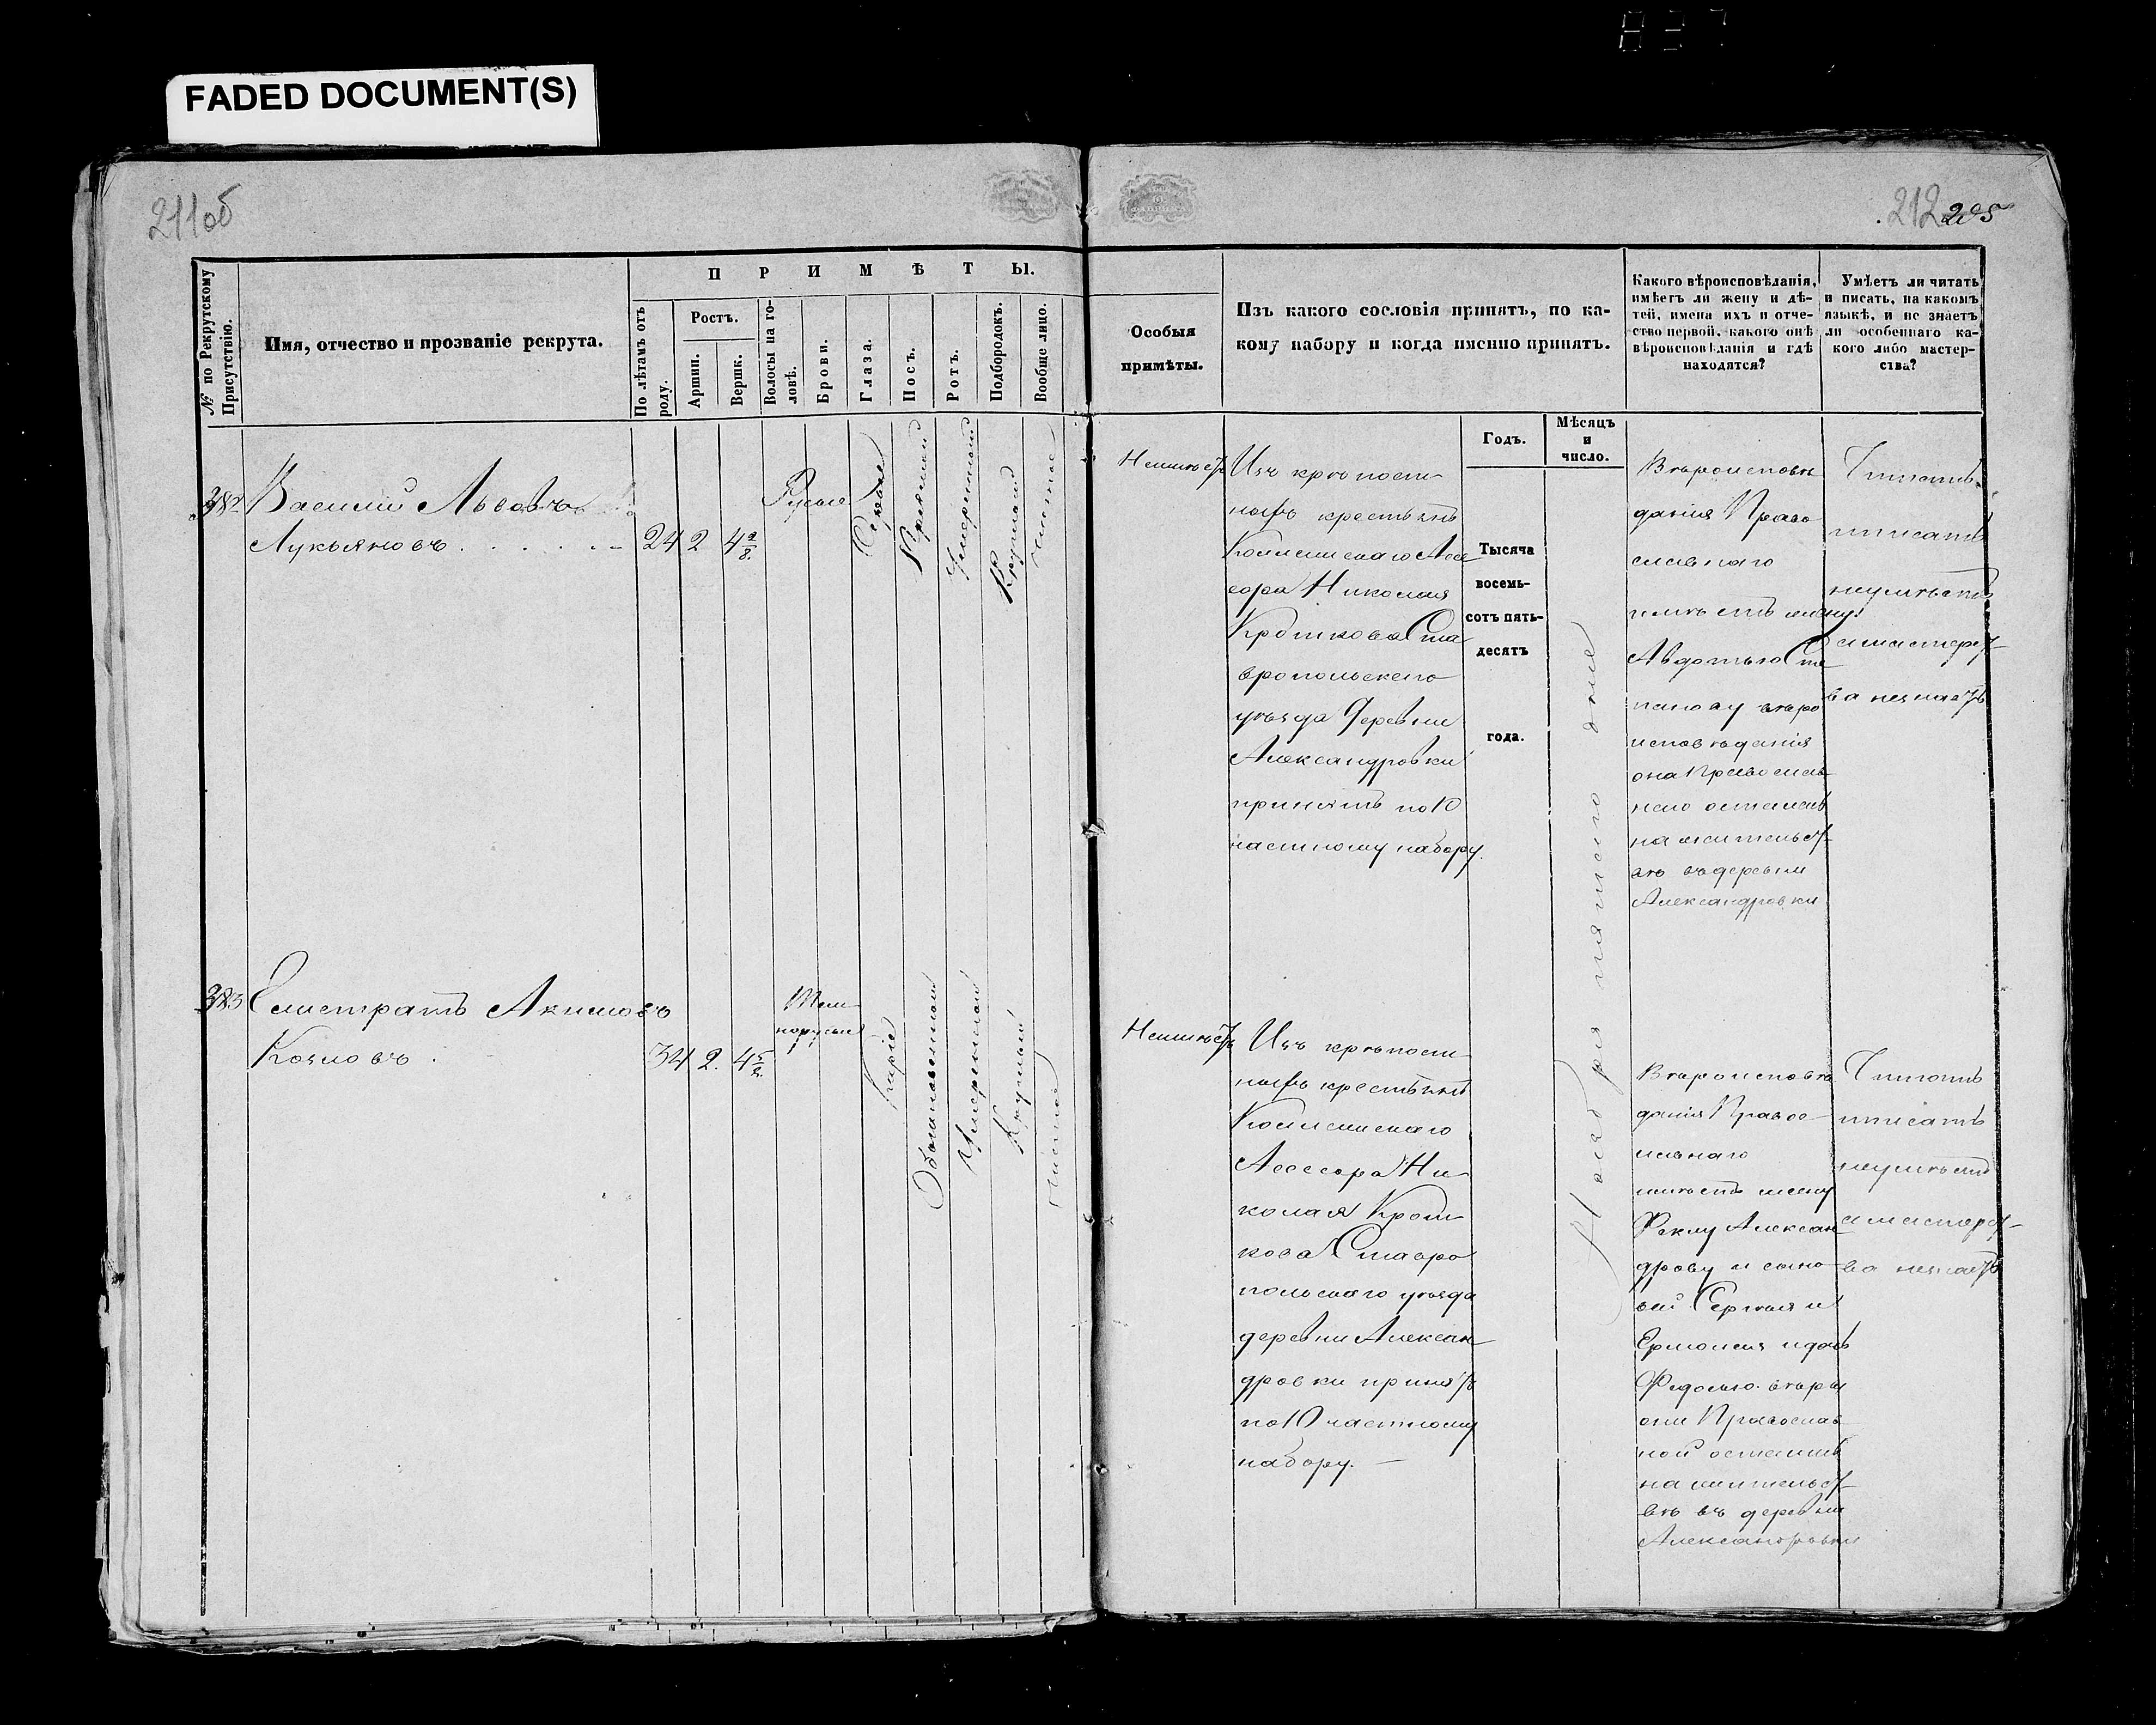 837
FADED DOCUMENT(S)
211об
212 205
№ по Рекрутскому Присутствію.
Имя, отчество и прозваніе рекрута.
ПРИМѢТЫ.
По лѣтамъ отъ роду.
Ростъ.
Аршин.
Вершк.
Волосы на головѣ.
Брови.
Глаза.
Носъ.
Ротъ.
Подбородокъ.
Вообще лицо.
Особыя
примѣты.
Изъ какого сословія принятъ, по ка-
кому набору и когда именно принятъ.
Какого вѣроисповѣданія,
имѣетъ ли жену и дѣ-
тей, имена ихъ и отче-
ство первой, какого онѣ
вѣроисповѣданія и гдѣ
находятся?
Умѣетъ ли читать
и писать, на какомъ
языкѣ, и не знаетъ
ли особеннаго ка-
кого либо мастер-
ства?
Годъ.
Мѣсяцъ
и
число.
382
Василий Львовъ
Лукьяновъ
24 2 4 2/8.
Русые
Серые
Прямой
Умеренный
Круглый
Чистое
Неимеетъ
Изъ крѣпост
ныхъ крестьянъ
Коллежскаго Ассе
сора Николая
Кроткова Ста
вропольскаго
уѣзда Деревни
Александровки
принятъ по 10
частному набору.
Тысяча
восемь-
сотъ пять-
десятъ
года.
Ноября пятаго дня
Вѣроисповѣ
данія Право
славнаго
имѣетъ жену
Авдотью Сте
панову вѣро
исповѣданія
она Православ
наго осталась
на жительст
вѣ въ деревни
Александровки
Читать
писать
неумѣетъ
а мастерст
ва незнаетъ
383
Елистратъ Акимовъ
Козловъ
34 2. 4 5/8.
Тем
норусые
Карие
Обыкновенной
Умеренной
Круглый
Чистое
Неимѣетъ
Изъ крѣпост
ныхъ крестьянъ
Коллежскаго
Асессора Ни
колая Крот
кова Ставро
польскаго уѣзда
деревни Алексан
дровки принятъ
по 10 частному
набору.
Вѣроисповѣ
данія Правос
лавнаго
имѣетъ жену
Феклу Алексан
дрову и сыно
вей Сергѣя и
Ермолая и дочь
Федосью вѣры
они Православ
ной остались
на жительст
вѣ въ деревни
Александровки
Читать
писать
неумѣетъ
а мастерст
ва незнаетъ